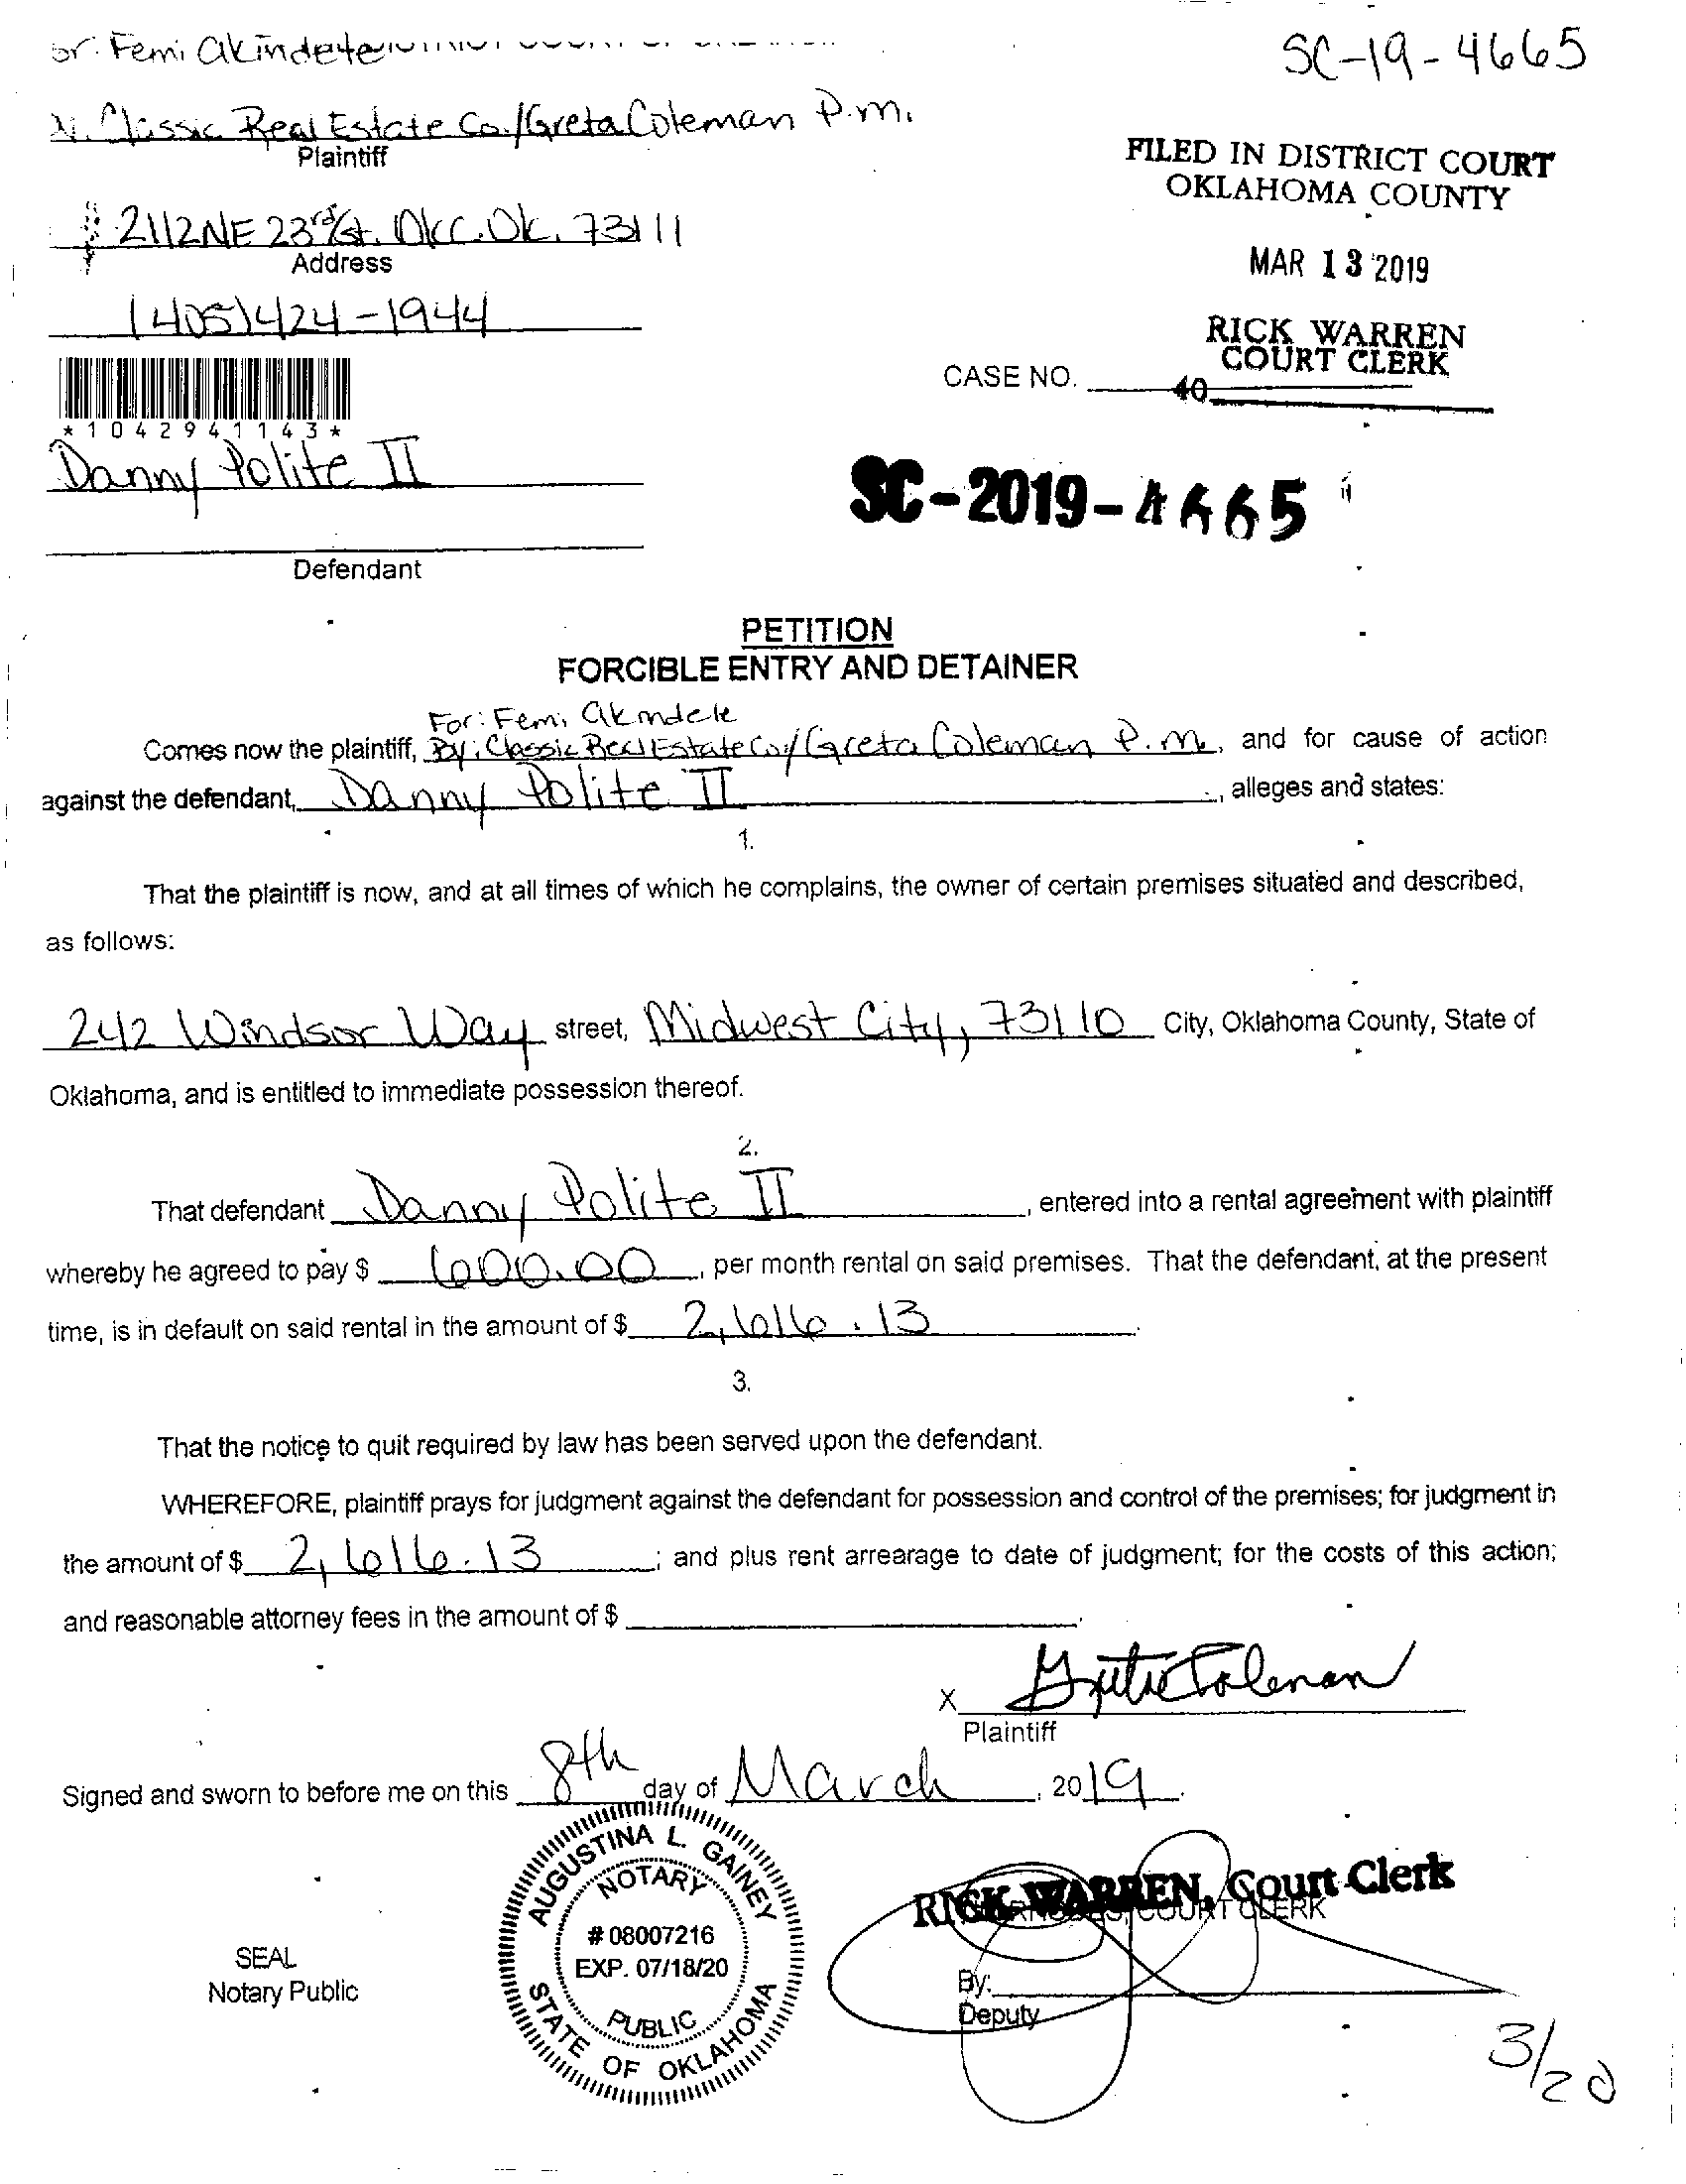 or: Femi Akindele
SC-19-4665
Classic Real Estate Co./Greta Coleman P.M.
Plaintiff
FILED IN DISTRICT COURT
OKLAHOMA COUNTY
2112 NE 23rd St. OKC. OK. 73111
Address
MAR 13 2019
(405)424-1944
RICK WARREN
COURT CLERK
CASE NO.
40
*1042941143*
Danny Polite II
SC-2019-4665
Defendant
PETITION
FORCIBLE ENTRY AND DETAINER
For: Femi Akindele
Comes now the plaintiff, By: Classic Real Estate Co./Greta Coleman P.M., and for cause of action
against the defendant, Danny Polite II, alleges and states:
1.
That the plaintiff is now, and at all times of which he complains, the owner of certain premises situated and described,
as follows:
242 Windsor Way street, Midwest City, 73110 City, Oklahoma County, State of
Oklahoma, and is entitled to immediate possession thereof.
2.
That defendant Danny Polite II, entered into a rental agreement with plaintiff
whereby he agreed to pay $ 600.00, per month rental on said premises. That the defendant, at the present
time, is in default on said rental in the amount of $ 2,616.13.
3.
That the notice to quit required by law has been served upon the defendant.
WHEREFORE, plaintiff prays for judgment against the defendant for possession and control of the premises; for judgment in
the amount of $ 2,616.13; and plus rent arrearage to date of judgment; for the costs of this action;
and reasonable attorney fees in the amount of $
X Greta Coleman
Plaintiff
Signed and sworn to before me on this 8th day of March, 2019.
AUGUSTINA L. GAINEY
NOTARY
# 08007216
EXP. 07/18/20
PUBLIC
STATE OF OKLAHOMA
RICK WARREN, Court Clerk
COURT CLERK
SEAL
Notary Public
By:
Deputy
3/20